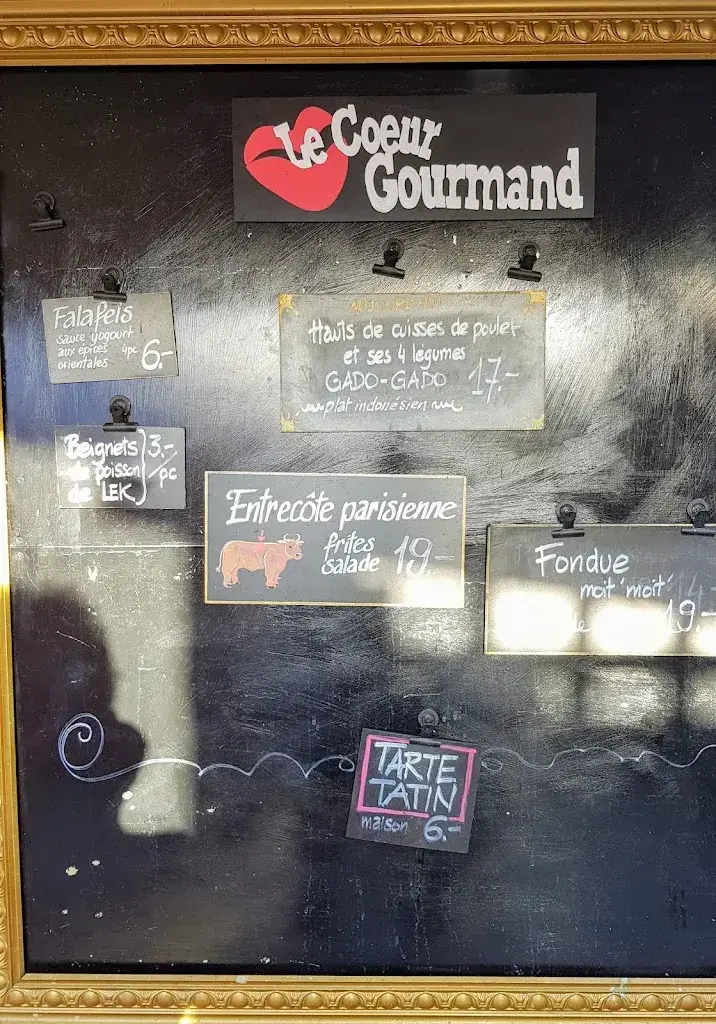 Le Coeur
Gourmand
Falafels
sauce yogourt
aux épices 4pc
orientales 6.-
AUJOURD'HUI
Hauts de cuisses de poulet
et ses 4 légumes
GADO-GADO 17.-
plat indonésien
Beignets 3.-
de poisson /pc
de LEK
Entrecôte parisienne
frites
salade 19.-
Fondue
moit' moit' 14.-
19.-
TARTE
TATIN
maison 6.-